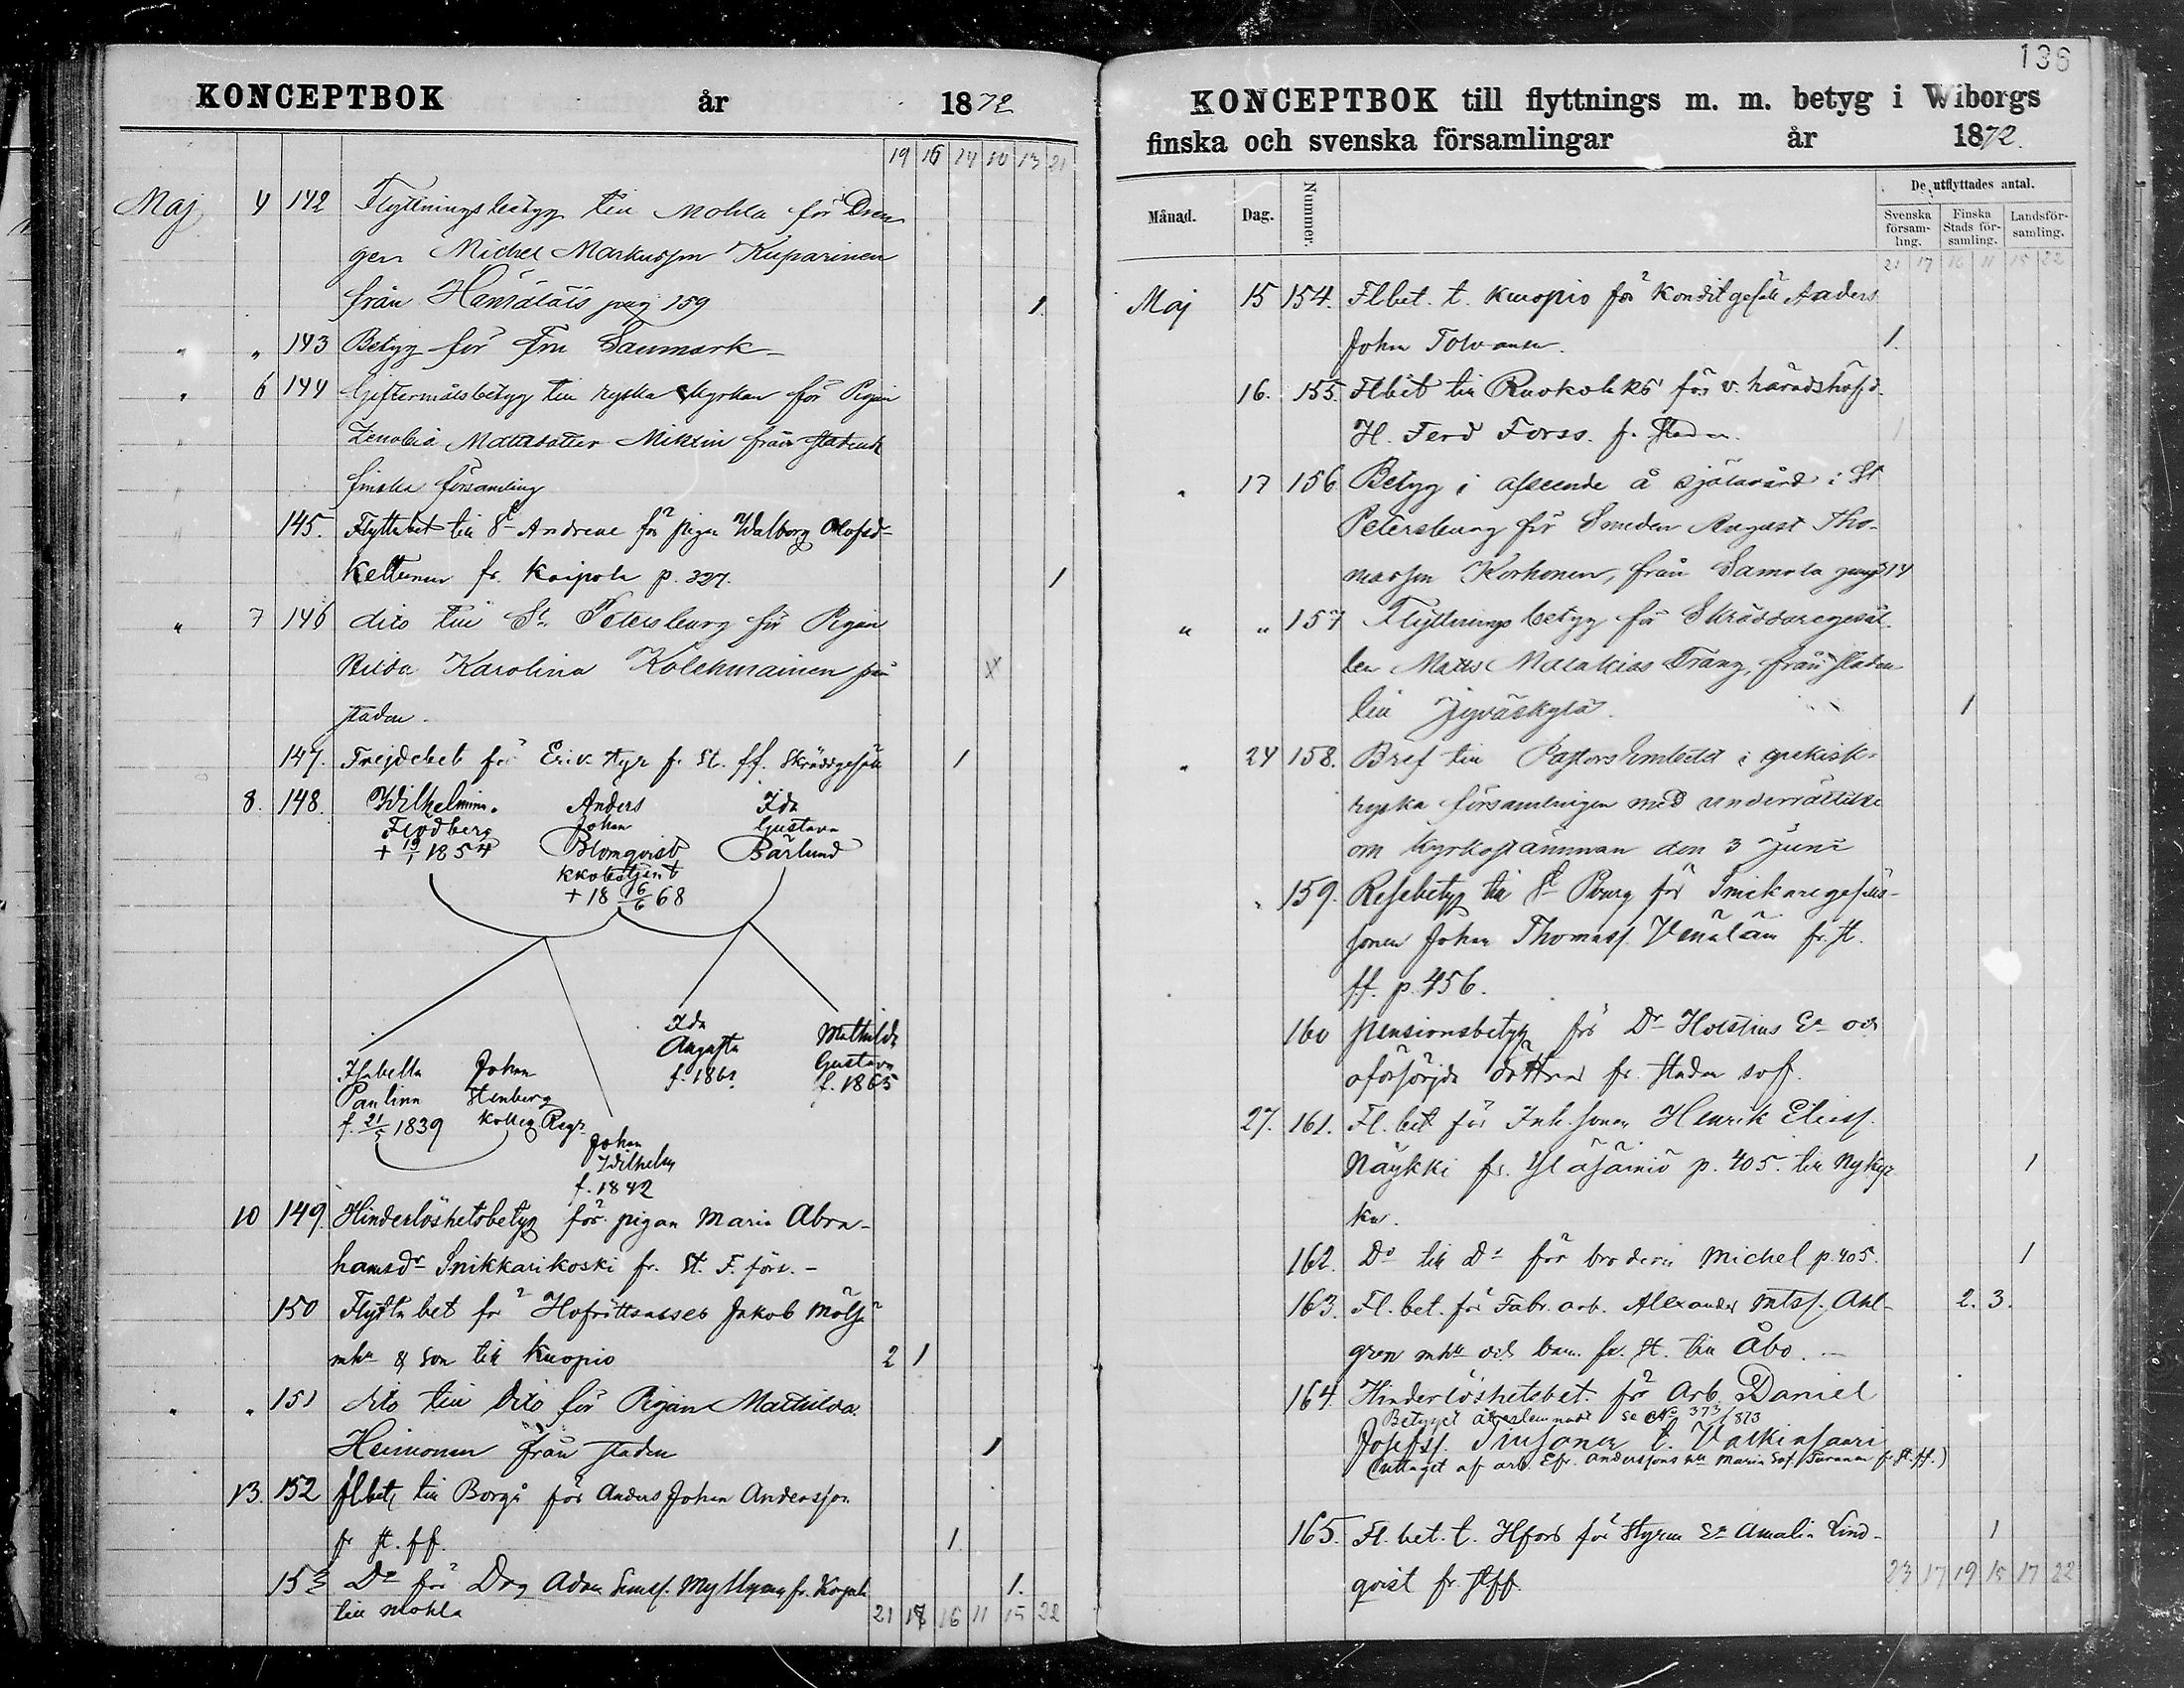 KONCEPTBOK år 1872
19 16 14 10 13 21
Maj 4 142 Flyttningsbetyg till Mohla för Dren
gen Michel Markusson Kuparinen
från Hämäläis pag 159 1
" " 143 Betyg för Fru Sanmark
" 6 144 Giftermålsbetyg till ryska kyrkan för Pigan
Zenobia Mattsdotter Miktin från stadens
finska församling
145. Flyttnbet till St Andreae för pigan Walborg Olofsd-
Kettunen fr. Kaipola p. 327. 1
" 7 146 dito till St. Petersburg för Pigan
Hilda Karolina Kolehmainen från X
staden.
147. Frejdebet för Erik Hyr f. St. ff. Skräddgesäll 1
8. 148. Wilhelmina Anders Ida
Flodberg Johan Gustava
+ 19/1 1854 Blomqvist Bärlund
+ 18 16/6 68
Ida Mathilda
Augusta Gustava
f. 1861 f. 1865
Isabella Johan
Paulina Stenberg
f. 21/5 1839 Kolleg Regr.
Johan
Wilhelm
f. 1842
10 149. Hinderlöshetsbetyg för pigan Maria Abra-
hamsdr Snikkarikoski fr. St. F. förs. -
150 Flyttn bet för Hofrättsasses Jakob Mölsä
mhu & son till Kuopio 2 1
" " 151 dito till dito för Pigan Mathilda
Heimonen från staden 1
13. 152 flbet, till Borgå för Anders Johan Andersson
fr st. ff. 1
153 Do för Drg Adam Simss. Myllynen fr. 1.
till Mohla 21 18 16 11 15 22
136
KONCEPTBOK till flyttnings m. m. betyg i Wiborgs
finska och svenska församlingar år 1872.
Månad. Dag. Nummer. De utflyttades antal.
Svenska församling. Finska Stads församling. Landsförsamling.
21 17 16 11 15 22
Maj 15 154. Flbet. t. Kuopio för Konditgesäll Anders
Johan Tolvanen. 1.
16. 155. Flbet till Ruokolaks för v. häradshöfd.
H. Ferd Forss. fr. staden. 1
" 17 156 Betyg i afseende å själavård i St
Petersburg för Smeden August Tho-
masson Korhonen, från Samola pag 514
" " 157 Flyttningsbetyg för Skräddaregesäl-
len Matts Malakias Trang, från staden
till Jyväskylä. 1
" 24 158. Bref till Pastorsembetet i grekisk-
ryska församlingen med underrättelse
om kyrkostämman den 3 Juni
" 159. Resebetyg till St Pburg för Snickaregesälls-
sonen Johan Thomass. Venäläin fr. st.
ff. p. 456.
160 pensionsbetyg för Dr Holstius Ea och
oförsörjda döttrar fr. staden svf.
27. 161. Fl. bet för Inh. sonen Henrik Eliass.
Näykki fr. Yläsäiniö p. 405. till Nykyr 1
ka.
162. Do till Do för brodern Michel p. 405. 1
163. Fl. bet. för Fabr. arb. Alexander Mtss. Ahl- 2. 3.
gren mhu och barn fr. st. till Åbo. -
164. Hinderlöshetsbet. för Arb. Daniel
Betyget återlemnadt se No 373/873
Josefss. t. Valkiasaari
(uttaget af arb. Efr. Anderssons hu Maria Sof. fr st. ff.)
165. Fl. bet. t. Hfors för Styrm Ea Amalia Lind- 1
qvist fr. stff. 23 17 19 15 17 22